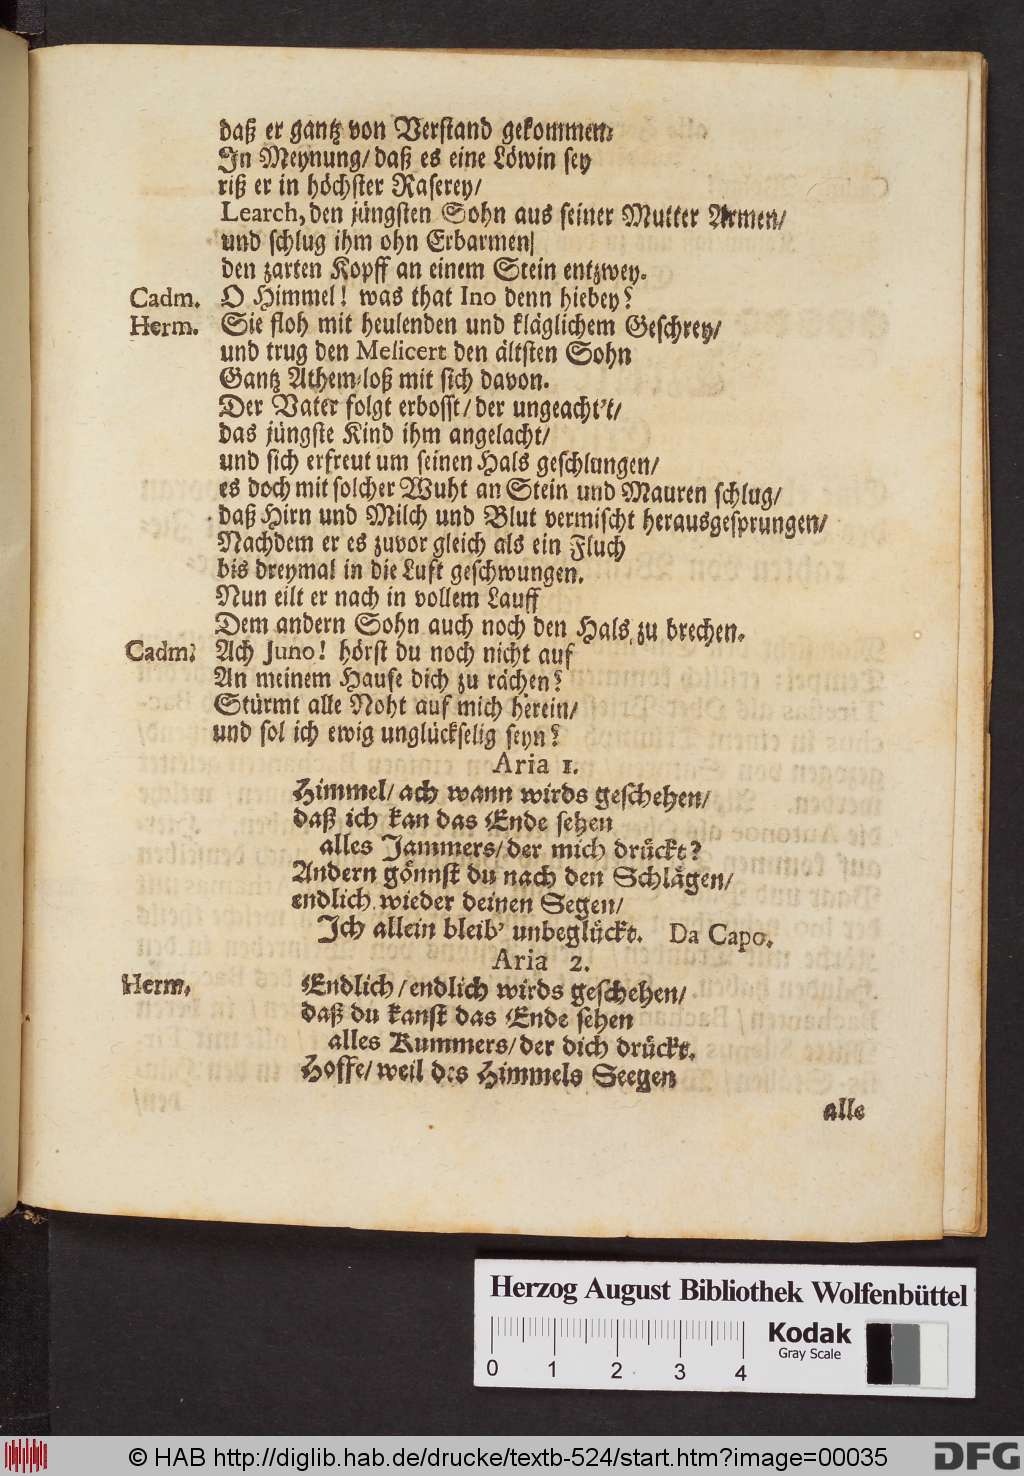 daß er gantz von Verstand gekommen:
In Meynung/ daß es eine Löwin sey
riß er in höchster Raserey/
Learch, den jüngsten Sohn aus seiner Mutter Armen/
und schlug ihm ohn Erbarmen|
den zarten Kopff an einem Stein entzwey.
Cadm. O Himmel! was that Ino denn hiebey?
Herm. Sie floh mit heulenden und kläglichem Geschrey/
und trug den Melicert den ältsten Sohn
Gantz Athem-loß mit sich davon.
Der Vater folgt erbosst/ der ungeacht't/
das jüngste Kind ihm angelacht/
und sich erfreut um seinen Hals geschlungen/
es doch mit solcher Wuht an Stein und Mauren schlug/
daß Hirn und Milch und Blut vermischt herausgesprungen/
Nachdem er es zuvor gleich als ein Fluch
bis dreymal in die Luft geschwungen.
Nun eilt er nach in vollem Lauff
Dem andern Sohn auch noch den Hals zu brechen.
Cadm: Ach Juno! hörst du noch nicht auf
An meinem Hause dich zu rächen?
Stürmt alle Noht auf mich herein/
und sol ich ewig unglückselig seyn?
Aria 1.
Himmel/ ach wann wirds geschehen/
daß ich kan das Ende sehen
alles Jammers/ der mich drückt?
Andern gönnst du nach den Schlägen/
endlich wieder deinen Segen/
Ich allein bleib' unbeglückt. Da Capo.
Aria 2.
Herm. Endlich/ endlich wirds geschehen/
daß du kanst das Ende sehen
alles Kummers/ der dich drückt.
Hoffe/ weil des Himmels Seegen
alle
Herzog August Bibliothek Wolfenbüttel
0 1 2 3 4
Kodak
Gray Scale
© HAB http://diglib.hab.de/drucke/textb-524/start.htm?image=00035
DFG